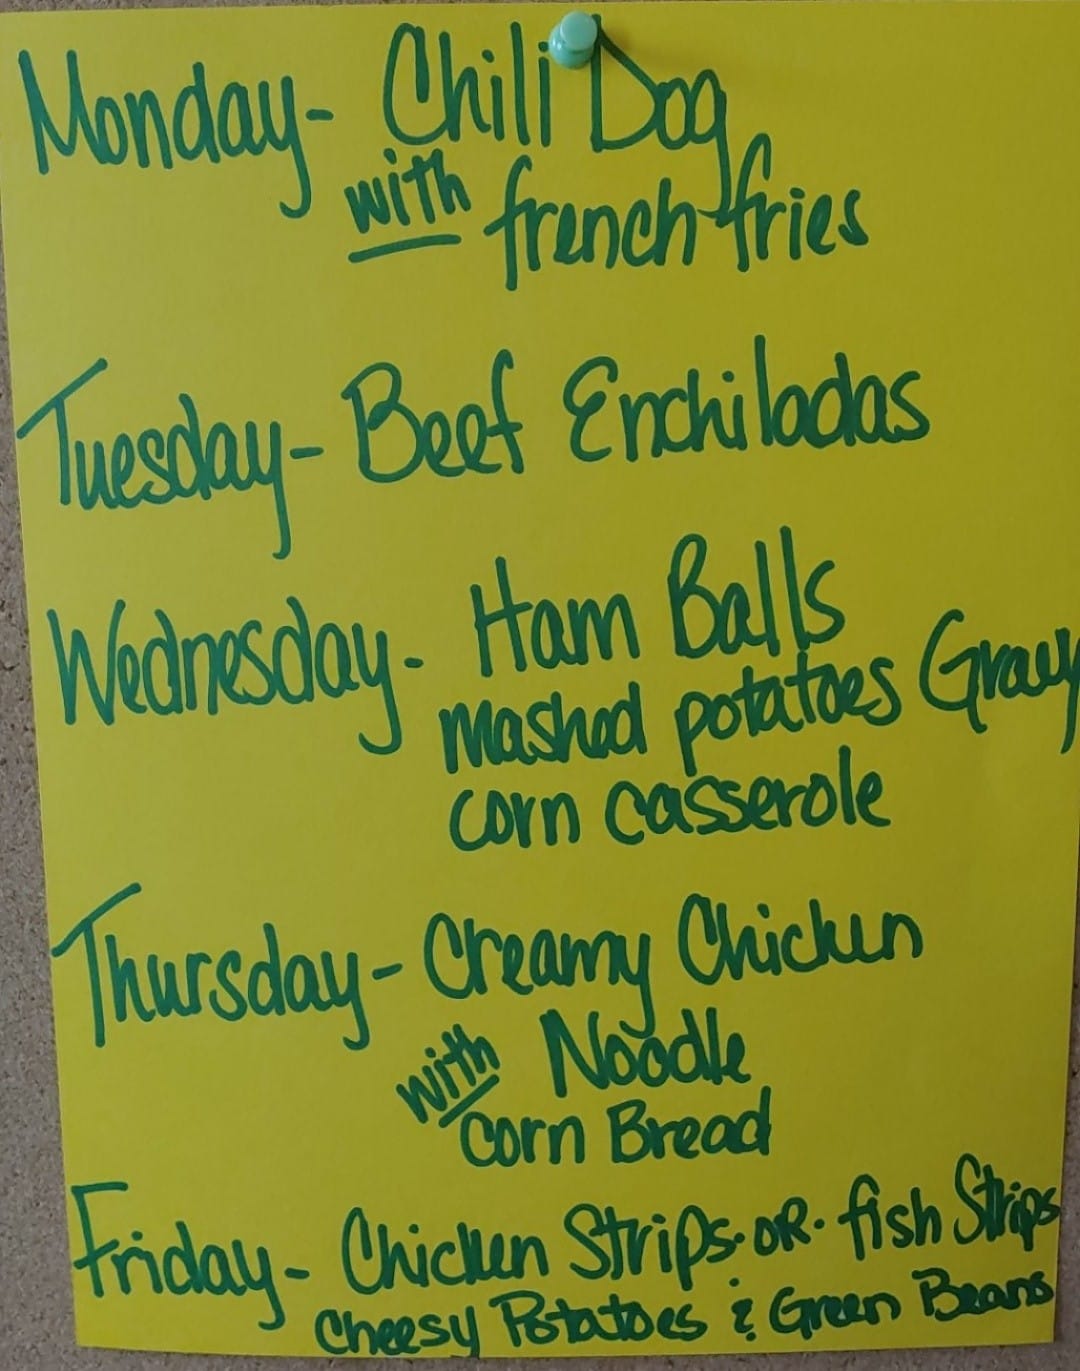 Monday- Chili Dog
with french fries
Tuesday- Beef Enchiladas
Wednesday- Ham Balls
mashed potatoes Gravy
corn casserole
Thursday- Creamy Chicken
with Noodle
Corn Bread
Friday- Chicken Strips. OR. fish Strips
Cheesy Potatoes & Green Beans